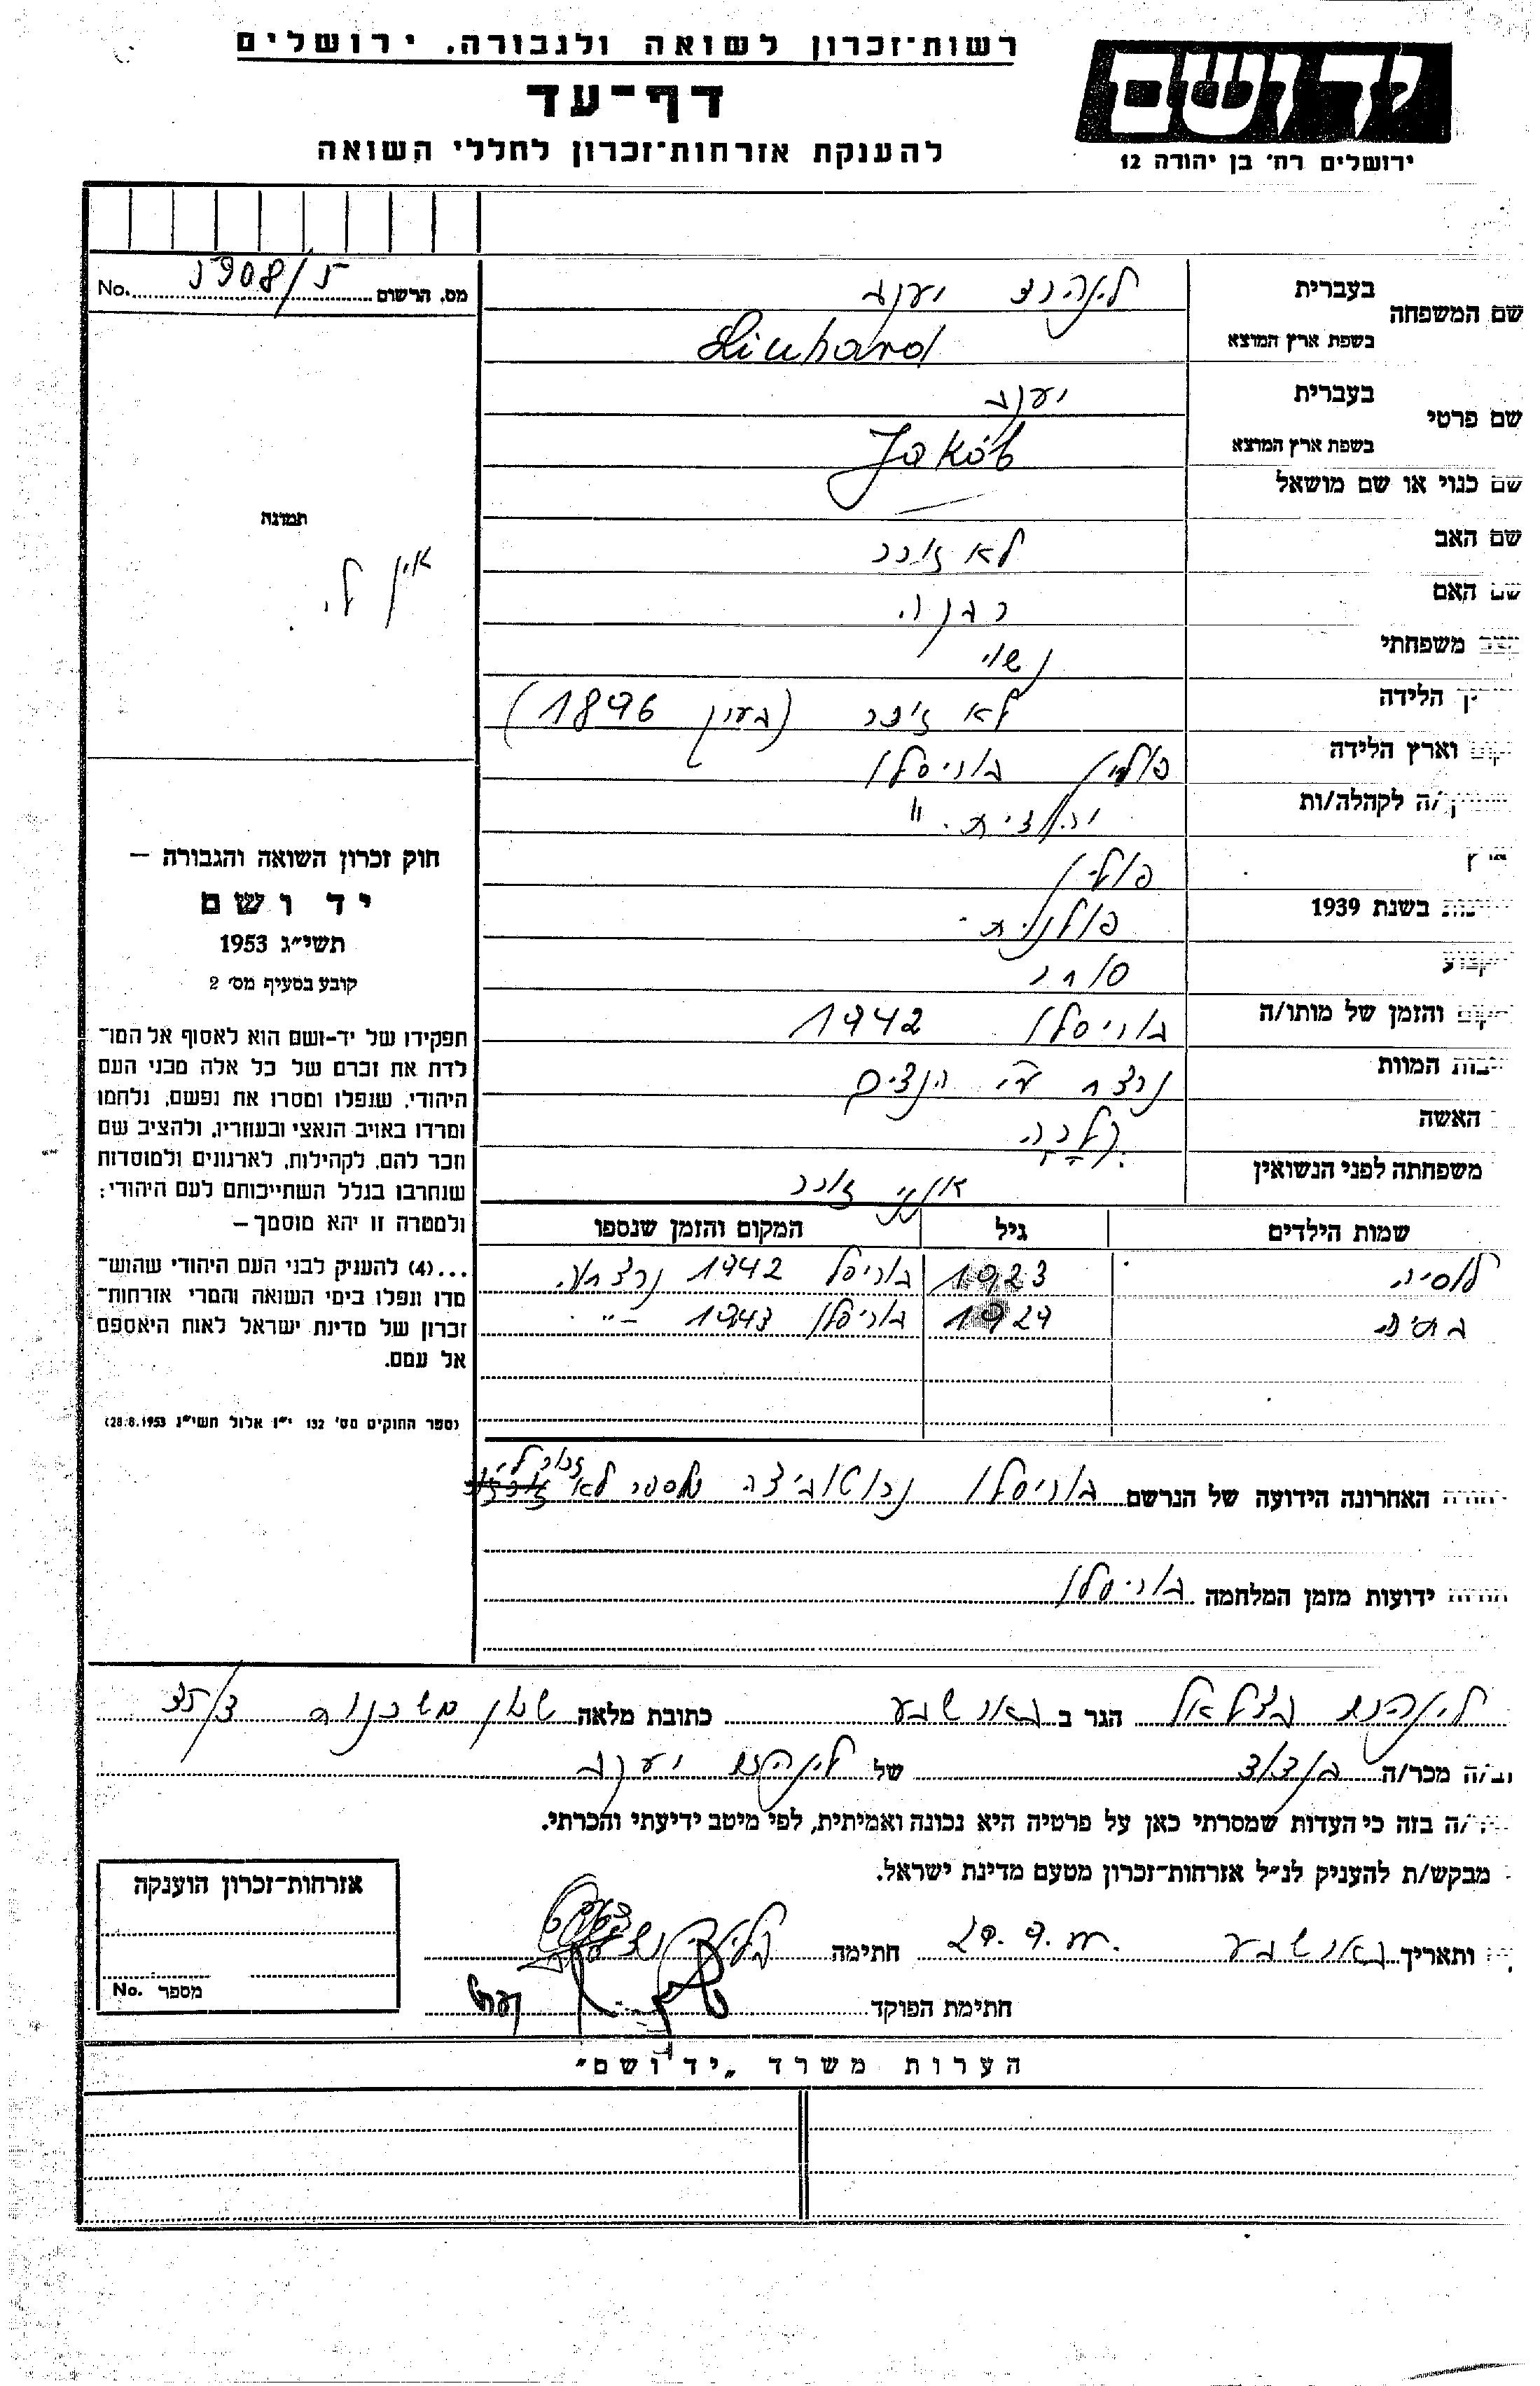 רשות־זכרון לשואה ולגבורה. ירושלים
דף־עד
להענקת אזרחות־זכרון לחללי השואה
ידושם
ירושלים רח׳ בן יהודה 12
מס. הרשום No.
שם המשפחה
בעברית יעקב
בשפת ארץ המוצא
שם פרטי
בעברית יעקב
בשפת ארץ המוצא Jakób
שם כנוי או שם מושאל —
שם האב לא זוכר
שם האם
משפחתי נשוי
הלידה לא זוכר (בערך 1896)
וארץ הלידה פולין בוריסלב
ה לקהלה/ות
פולין
בשנת 1939 פולנית
סוחר
והזמן של מותו/ה בוריסלב 1942
המוות נרצח ע״י הנצים
האשה
משפחתה לפני הנשואין אינני זוכר
שמות הילדים גיל המקום והזמן שנספו
לוסיה 1923 בוריסלב 1942
1929 בוריסלב 1943 —״—
האחרונה הידועה של הנרשם בוריסלב מספר לא זכור לי
ידועות מזמן המלחמה בוריסלב
תמונה
אין לי.
חוק זכרון השואה והגבורה —
יד ושם
תשי״ג 1953
קובע בסעיף מס׳ 2
תפקידו של יד-ושם הוא לאסוף אל המו־
לדת את זכרם של כל אלה מבני העם
היהודי, שנפלו ומסרו את נפשם, נלחמו
ומרדו באויב הנאצי ובעוזריו, ולהציב שם
וזכר להם, לקהילות, לארגונים ולמוסדות
שנחרבו בגלל השתייכותם לעם היהודי;
ולמטרה זו יהא מוסמך —
...(4) להעניק לבני העם היהודי שהוש־
מדו ונפלו בימי השואה והמרי אזרחות־
זכרון של מדינת ישראל לאות היאספם
אל עמם.
(ספר החוקים מס׳ 132 י״ז אלול תשי״ג 28.8.1953)
בצלאל הגר ב באר שבע כתובת מלאה שכון
מכר/ה בן דוד של יעקב
ה בזה כי העדות שמסרתי כאן על פרטיה היא נכונה ואמיתית, לפי מיטב ידיעתי והכרתי.
מבקש/ת להעניק לנ״ל אזרחות־זכרון מטעם מדינת ישראל.
ותאריך באר שבע חתימה
חתימת הפוקד
אזרחות־זכרון הוענקה
מספר No.
הערות משרד „יד ושם״